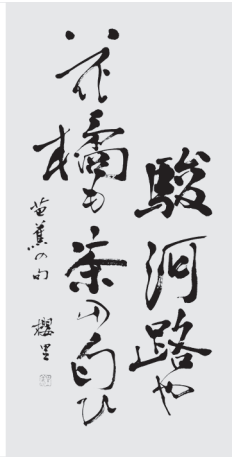 駿河路や
花橘も茶の匂ひ
芭蕉の句 櫻里